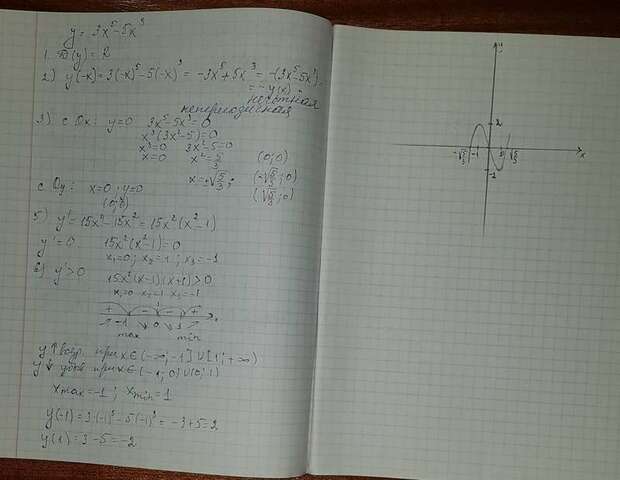 y = 3x⁵-5x³
1. D(y) = R
2) y(-x) = 3(-x)⁵-5(-x)³ = -3x⁵+5x³ = -(3x⁵-5x³) =
= -y(x)
нечётная
непериодичная
3) с Ox: y=0 3x⁵-5x³=0
x³(3x²-5)=0
x³=0 3x²-5=0
x=0 x²=5/3 (0;0)
x=±√5/3; (-√5/3;0)
(√5/3;0)
с Oy: x=0; y=0
(0;0)
5) y'=15x⁴-15x²=15x²(x²-1)
y'=0 15x²(x²-1)=0
x₁=0; x₂=1; x₃=-1
6) y'>0 15x²(x-1)(x+1)>0
x₁=0 x₂=1 x₃=-1
+ - - +
-1 0 1 x
max min
y↑ возр. при x∈(-∞;-1]∪[1;+∞)
y↓ убыв при x∈(-1;0)∪(0;1)
x max=-1; x min=1
y(-1)=3·(-1)⁵-5(-1)³=-3+5=2
y(1)=3-5=-2
y
2
-√5/3 -1 1 √5/3 x